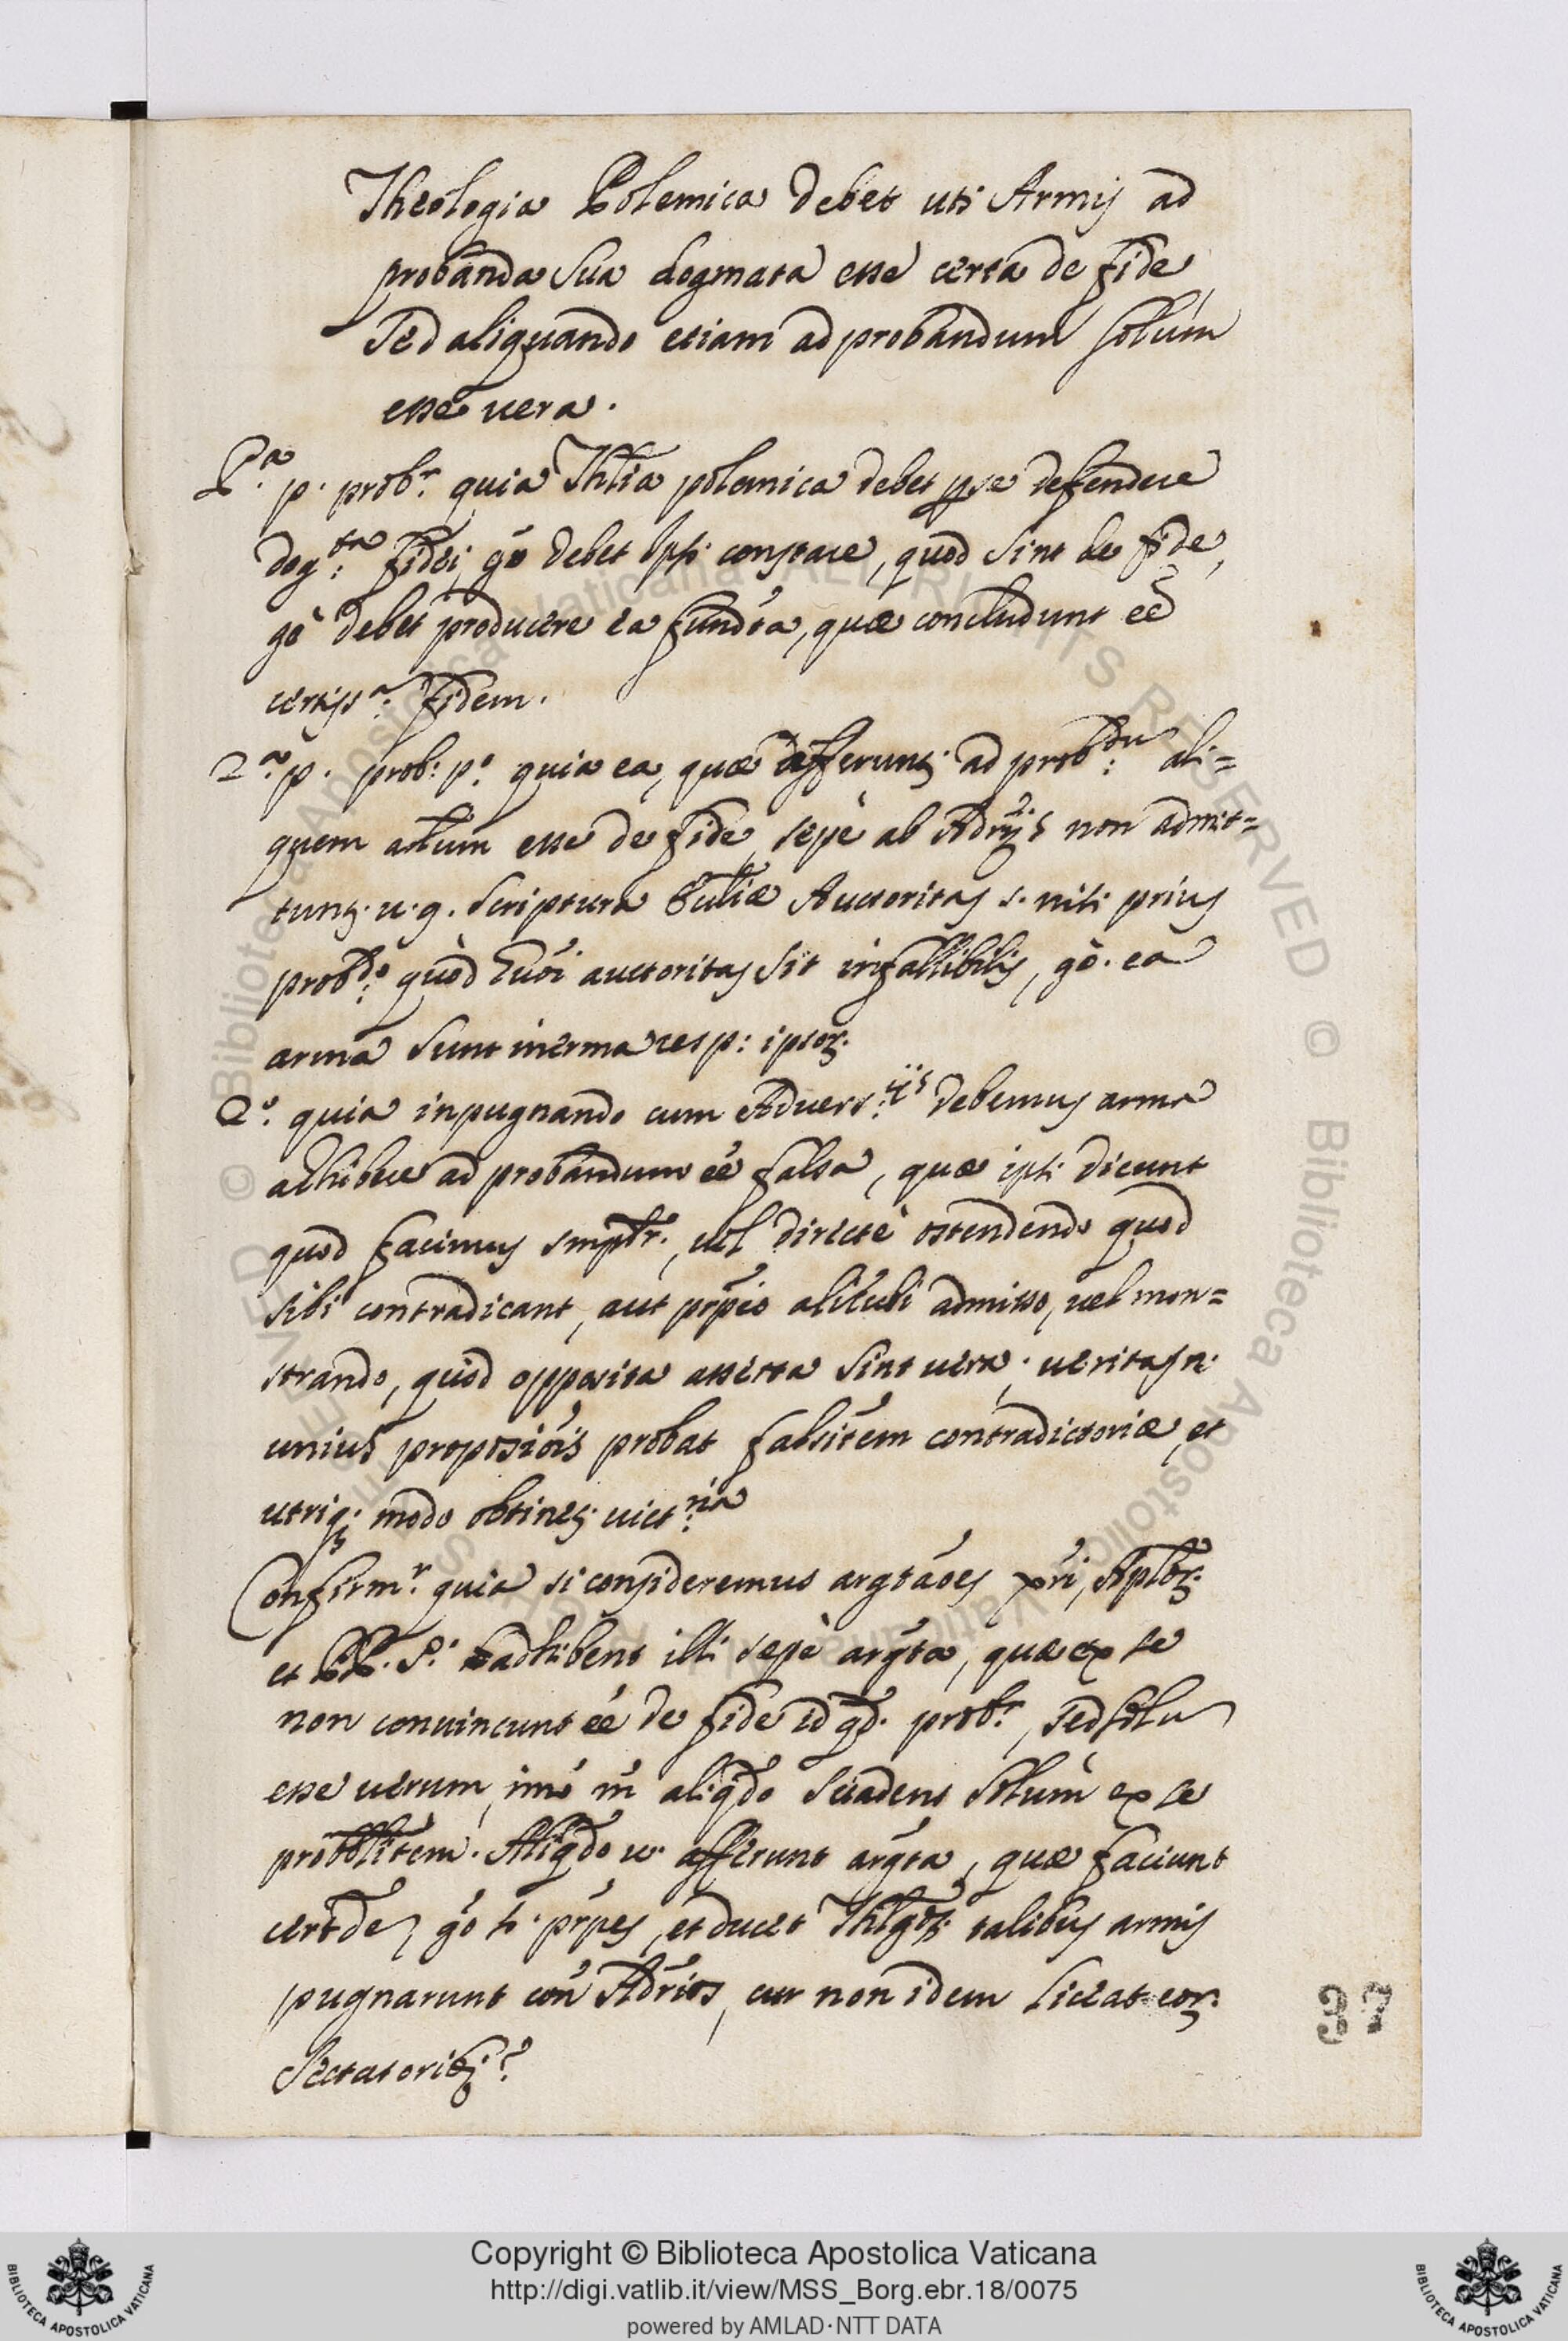 Theologia Polemica debet uti Armis ad
probanda sua dogmata esse certa de fide
sed aliquando etiam ad probandum solùm
esse uera.
P.ª p. prob.r quia Thlia polemica debet per se defendere
dog:ta fidei, gò debet ipsi constare, quod sint de fide,
gò debet producere ea fundta, quæ concludunt eé
certiss.ª fidem.
2.ª p. prob: p.º quia ea, quæ afferunt. ad prob:du ali=
quem artlum esse de fide, sepè ab Adrijs non admit=
tunt. u.g. scriptura Auctoritas s. nisi prius
prob:do quòd auctoritas sit infallibilis, gò. ea
arma sunt inerma resp: ipsor.
2.º quia inpugnando cum Aduers:ijs debemus arma
adhibere ad probandum eé falsa, quæ ipsi dicunt
quod facimus smpltr., uel directè ostendendo quod
sibi contradicant, aut prpio alicubi admisso, uel mon=
strando, quòd opposita asserta sint uera, ueritas n.
unius proposiòis probat falsitem contradictoriæ, et
utriq; modo obtinet. uict:ria
Confirm.r quia si consideremus argtaòes xri, Aplor.
et PP. S. adhibent illi sepè argta, quæ ex se
non conuincunt eé de fide id qd. prob.r, sed solu
esse uerum, imò aliqdo suadent solùm ex se
probblitem. Aliqdo u. afferunt argta, quæ faciunt
certde, gò si prpes, et duces Thlgor. talibus armis
pugnarunt con Adrios, cur non idem liceat eor.
Sectatorib;?
37
Copyright © Biblioteca Apostolica Vaticana
http://digi.vatlib.it/view/MSS_Borg.ebr.18/0075
powered by AMLAD·NTT DATA